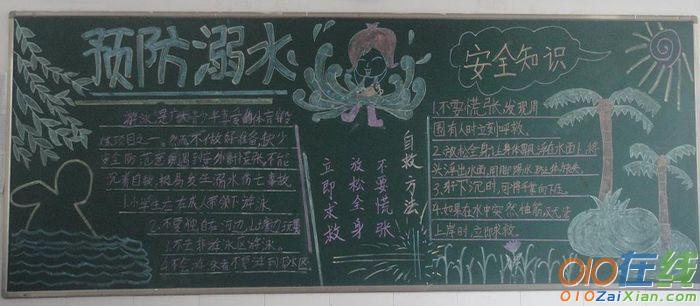 预防溺水
游泳是广大青少年喜爱的体育锻
炼项目之一。然而不做好准备,缺少
安全防范意识,遇到意外时慌张,不能
沉着自救,极易发生溺水伤亡事故。
1.小学生应在成人带领下游泳。
2.不要独自在河边、山塘边玩耍
3.不去非游泳区游泳。
4.不会游泳者不要游到深水区
自救方法
不要慌张
放松全身
立即求救
安全知识
1.不要慌张,发现周
围有人时立刻呼救。
2.放松全身,让身体漂浮在水面上,将
头浮出水面,用脚踢水,防止体力丧失。
3.身体下沉时,可将手掌向下压。
4.如果在水中突然抽筋,又无法
上岸时,立即求救。
010在线
010ZaiXian.com